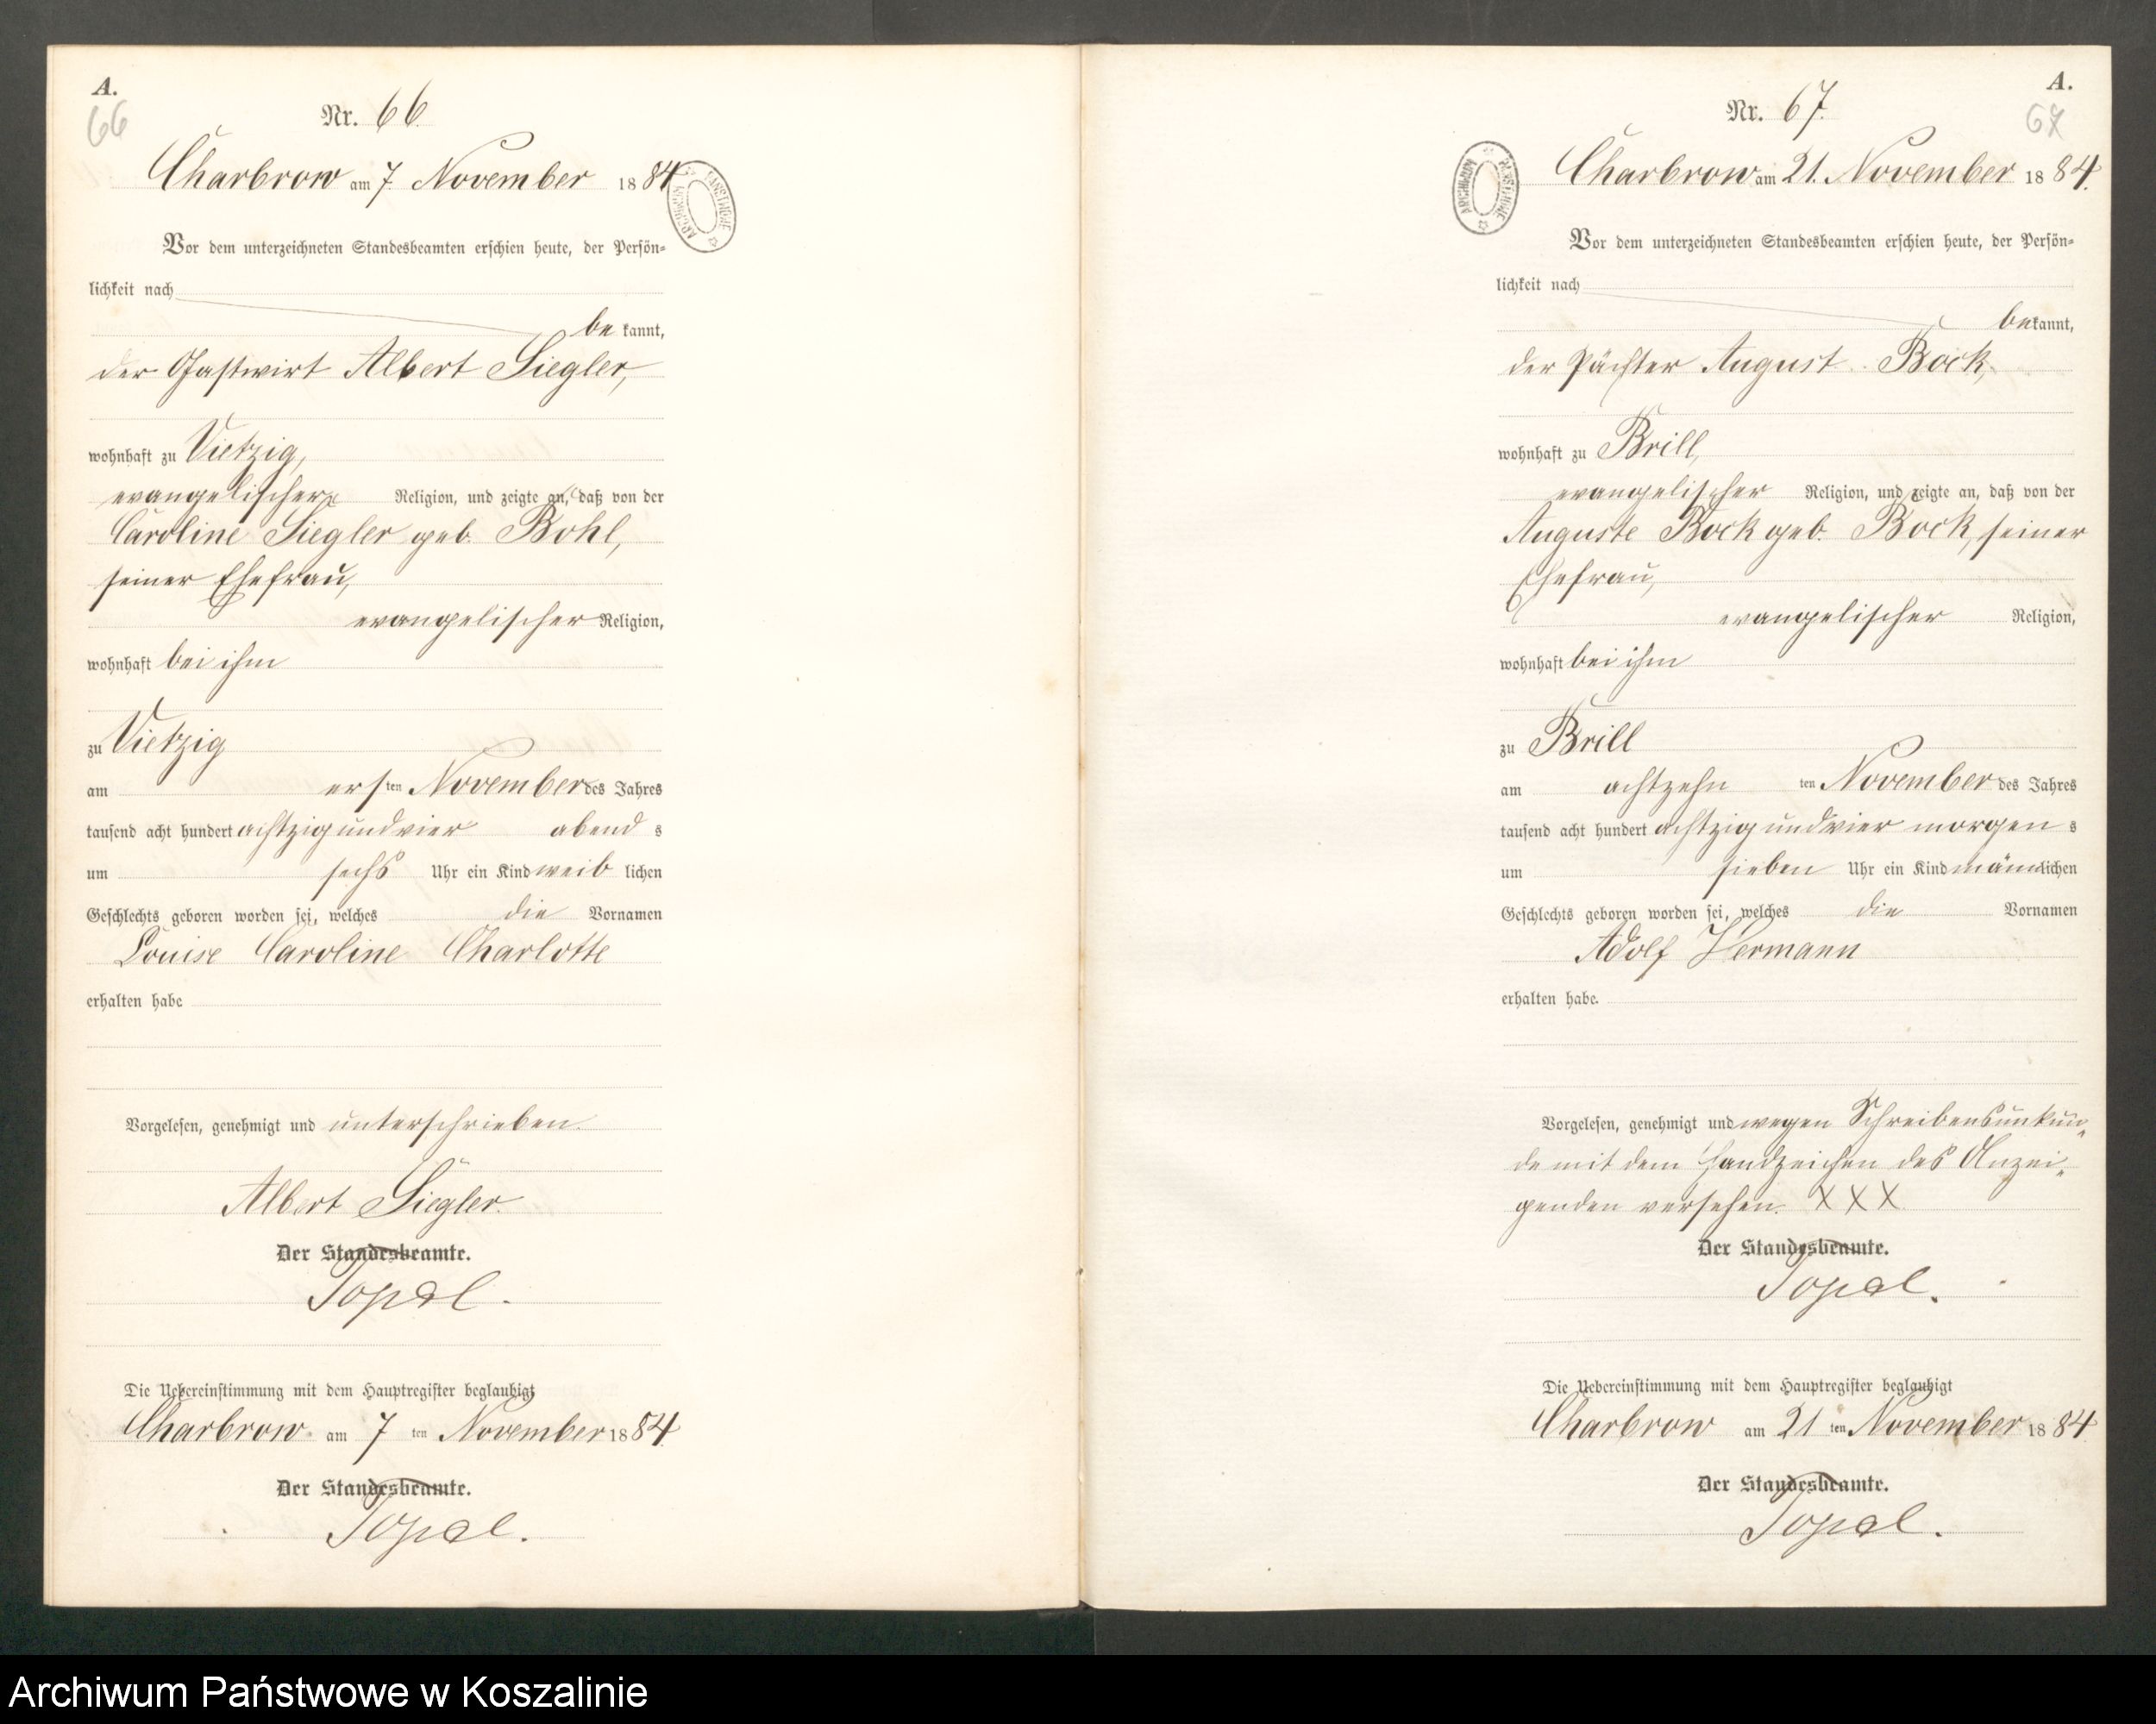 A.
66
Nr. 66.
Charbrow am 7. November 1884.
Vor dem unterzeichneten Standesbeamten erschien heute, der Persön-
lichkeit nach
bekannt,
der Gastwirt Albert Siegler,
wohnhaft zu Vietzig,
evangelischer Religion, und zeigte an, daß von der
Caroline Siegler geb. Bohl,
seiner Ehefrau,
evangelischer Religion,
wohnhaft bei ihm
zu Vietzig
am ersten November des Jahres
tausend acht hundert achtzig und vier abends
um sechs Uhr ein Kind weiblichen
Geschlechts geboren worden sei, welches die Vornamen
Louise Caroline Charlotte
erhalten habe
Vorgelesen, genehmigt und unterschrieben.
Albert Siegler.
Der Standesbeamte.
Topel.
Die Uebereinstimmung mit dem Hauptregister beglaubigt
Charbrow am 7ten November 1884.
Der Standesbeamte.
Topel.
ARCHIWUM PAŃSTWOWE
A.
67
Nr. 67.
Charbrow am 21. November 1884.
ARCHIWUM PAŃSTWOWE
Vor dem unterzeichneten Standesbeamten erschien heute, der Persön-
lichkeit nach
bekannt,
der Pächter August Bock,
wohnhaft zu Brill,
evangelischer Religion, und zeigte an, daß von der
Auguste Bock geb. Bock, seiner
Ehefrau,
evangelischer Religion,
wohnhaft bei ihm
zu Brill
am achtzehnten November des Jahres
tausend acht hundert achtzig und vier morgens
um sieben Uhr ein Kind männlichen
Geschlechts geboren worden sei, welches die Vornamen
Adolf Hermann
erhalten habe.
Vorgelesen, genehmigt und wegen Schreibensunkun-
de mit dem Handzeichen des Anzei-
genden versehen. XXX
Der Standesbeamte.
Topel.
Die Uebereinstimmung mit dem Hauptregister beglaubigt
Charbrow am 21ten November 1884.
Der Standesbeamte.
Topel.
Archiwum Państwowe w Koszalinie